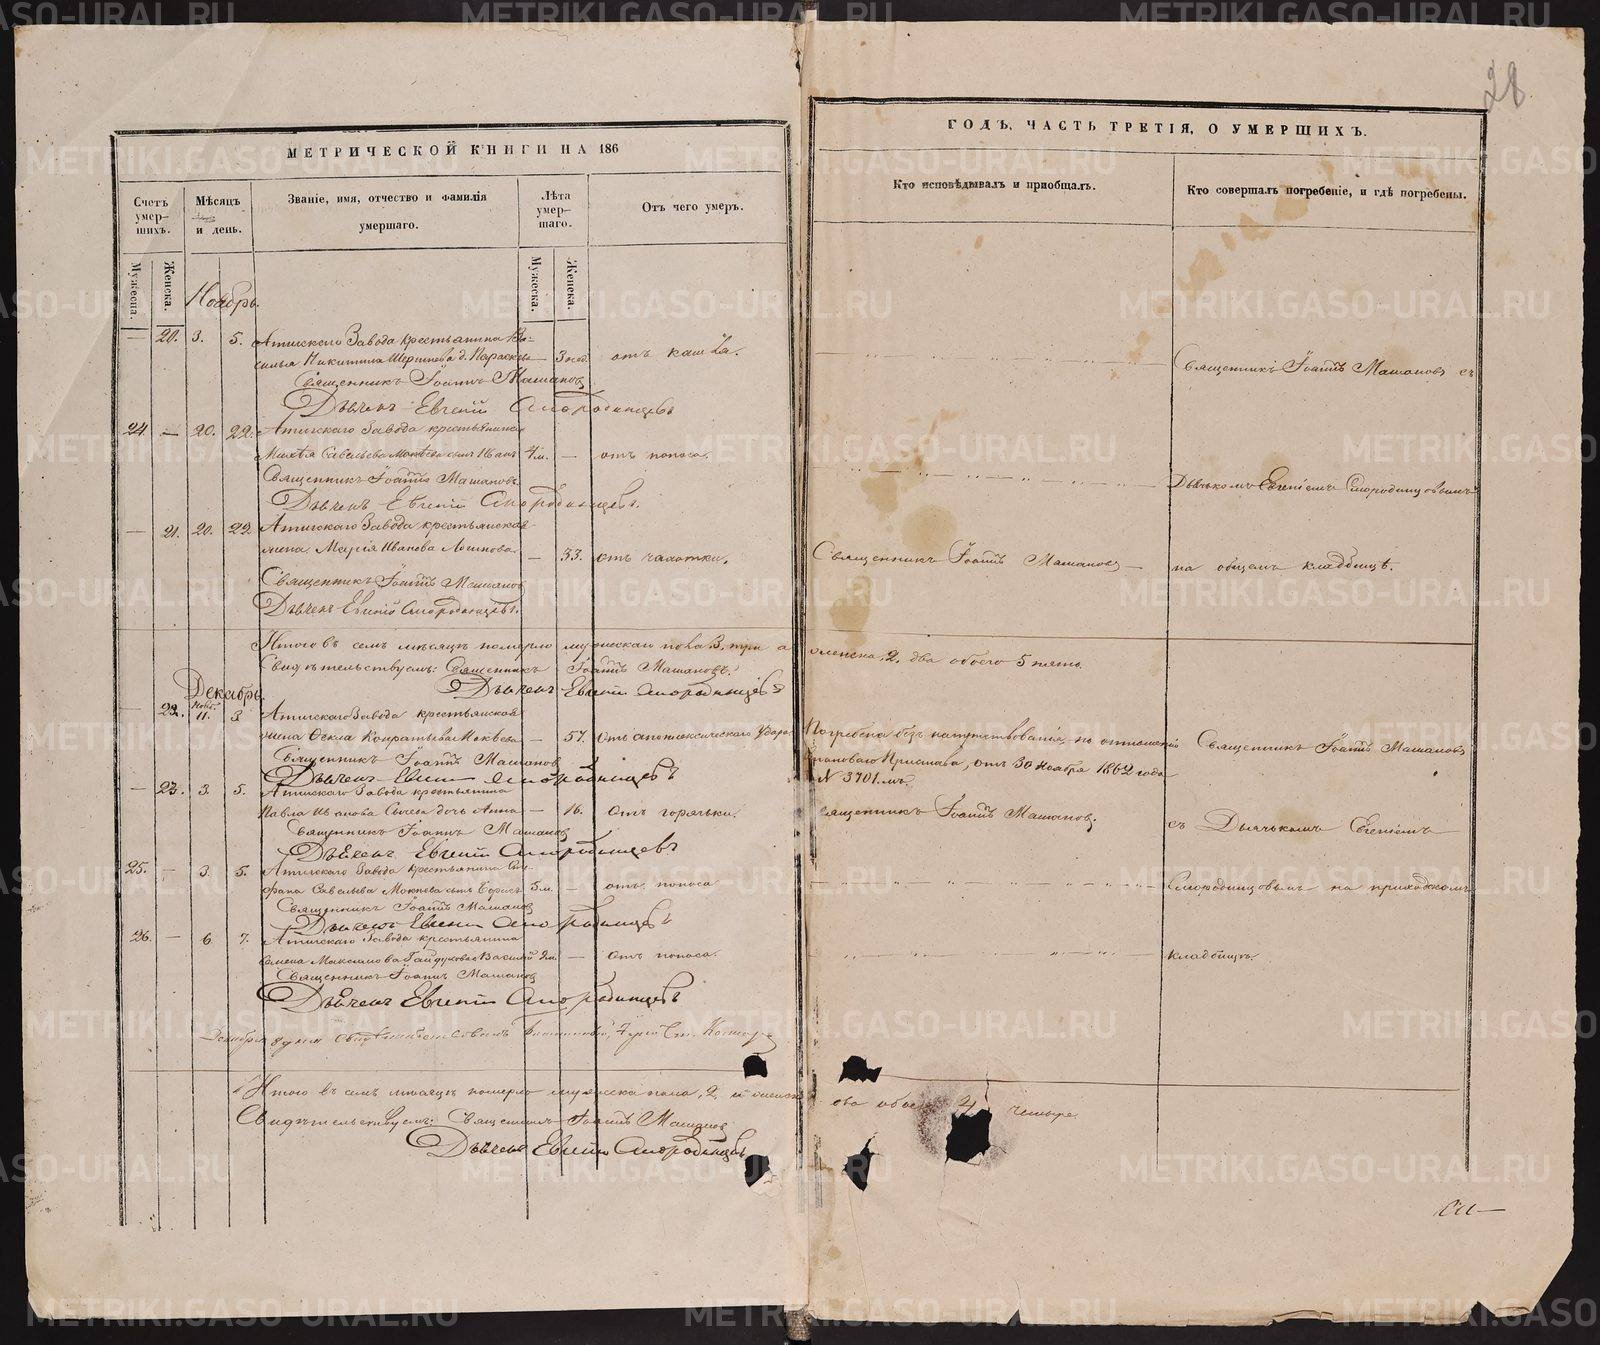 28
МЕТРИЧЕСКОЙ КНИГИ НА 186
ГОДЪ, ЧАСТЬ ТРЕТІЯ, О УМЕРШИХЪ.
Счетъ умер-шихъ.
Мѣсяцъ и день.
Званіе, имя, отчество и фамилія умершаго.
Лѣта умер-шаго.
Отъ чего умеръ.
Кто исповѣдывалъ и приобщалъ.
Кто совершалъ погребеніе, и гдѣ погребены.
Мужеска.
Женска.
Мужеска.
Женска.
Ноябрь.
— 20. 3. 5. Атигскаго Завода крестьянина Ва-
силья Никитина д. Параскева — 3 нед. отъ кашля.
Священникъ Іоаннъ Машановъ
Дьячекъ Евгеній Смородинцевъ
Священникъ Іоаннъ Машановъ съ
24. — 20. 22. Атигскаго Завода крестьянина
Савельева сынъ 4 м. — отъ поноса.
Священникъ Іоаннъ Машановъ
Дьячекъ Евгеній Смородинцевъ.
Дьячькомъ Евгеніемъ Смородинцовымъ
— 21. 20. 22. Атигскаго Завода крестьянская
жена Марія Иванова — 33. отъ чахотки.
Священникъ Іоаннъ Машановъ —
на общемъ кладбищѣ.
Священникъ Іоаннъ Машановъ
Дьячекъ Евгеній Смородинцевъ.
Итого въ семъ мѣсяцѣ померло мужескаго пола 3. три а женска, 2. два обоего 5 пять.
Свидѣтельствуемъ: Священникъ Іоаннъ Машановъ.
Дьячекъ Евгеній Смородинцевъ
Декабрь.
— 22. 3 Атигскаго Завода крестьянская
жена Фекла — 57. отъ апоплексическаго удара
Погребена безъ напутствованія, по отношенію
Становаго Пристава, отъ 30 Ноября 1862 года
№ 3701.мъ.
Священникъ Іоаннъ Машановъ
Священникъ Іоаннъ Машановъ
Дьячекъ Евгеній Смородинцевъ
— 23. 3. 5. Атигскаго Завода крестьянина
Павла Иванова дочь Анна — 16. отъ горячьки.
Священникъ Іоаннъ Машановъ.
съ Дьячькомъ Евгеніемъ
Священникъ Іоаннъ Машановъ
Дьячекъ Евгеній Смородинцевъ
25. — 3. 5. Атигскаго Завода крестьянина
Савельева сынъ Борисъ 5 м. — отъ поноса
Смородинцовымъ на приходскомъ
Священникъ Іоаннъ Машановъ
Дьячекъ Евгеній Смородинцевъ
26. — 6. 7. Атигскаго Завода крестьянина
Василій 2 м. — отъ поноса.
кладбищѣ.
Священникъ Іоаннъ Машановъ
Дьячекъ Евгеній Смородинцевъ
Декабря
Итого въ семъ мѣсяцѣ померло мужеска пола, 2, и женска два обоего 4 четыре.
Свидѣтельствуемъ: Священникъ Іоаннъ Машановъ
Дьячекъ Евгеній Смородинцевъ
METRIKI.GASO-URAL.RU